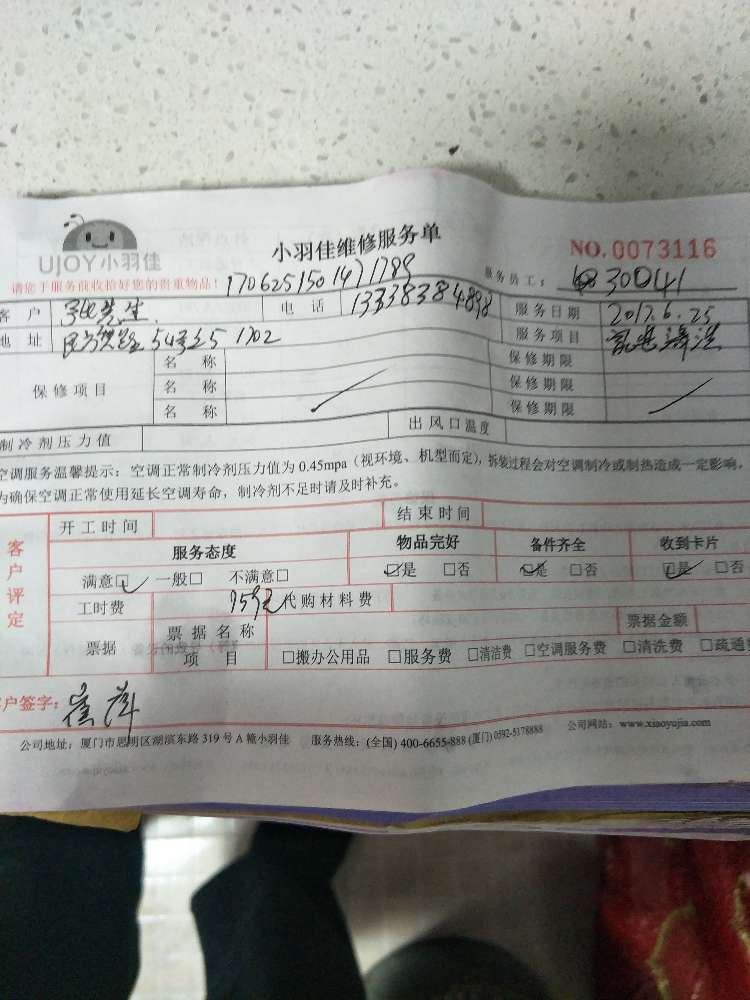 小羽佳维修服务单
NO.0073116
UJOY小羽佳
请您于服务前收拾好您的贵重物品!
服务员工: 30041
客 户 先生 电 话 13338384898 服务日期 2017.6.25
地 址 54号之5 1702 服务项目 清洗
保修项目 名 称 保修期限
名 称 保修期限
名 称 保修期限
制冷剂压力值 出风口温度
空调服务温馨提示:空调正常制冷剂压力值为 0.45mpa(视环境、机型而定),拆装过程会对空调制冷或制热造成一定影响,
为确保空调正常使用延长空调寿命,制冷剂不足时请及时补充。
客户评定
开工时间 结束时间
服务态度 物品完好 备件齐全 收到卡片
满意□ 一般□ 不满意□ □是 □否 □是 □否 □是 □否
工时费 95元 代购材料费
票据 票据名称 票据金额
项 目 □搬办公用品 □服务费 □清洁费 □空调服务费 □清洗费 □疏通
客户签字:
公司地址:厦门市思明区湖滨东路 319 号 A 幢小羽佳 服务热线:(全国) 400-6655-888 (厦门) 0592-5178888 公司网站:www.xiaoyujia.com